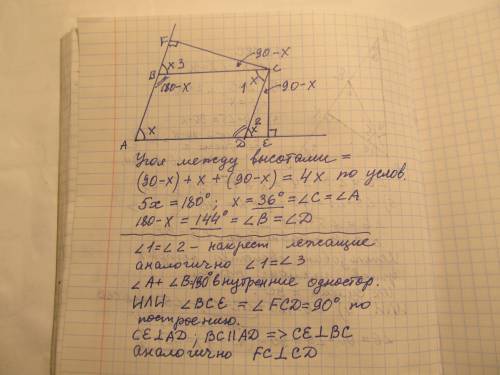 F
x 3
90-x
B
C
180-x
1 x
90-x
2
A
x
x
D
E
Угол между высотами =
(90-x)+x+(90-x)=4x по услов.
5x=180°; x=36°=∠C=∠A
180-x=144°=∠B=∠D
∠1=∠2 - накрест лежащие
аналогично ∠1=∠3
∠A+∠B=180° внутренние одностор.
ИЛИ ∠BCE=∠FCD=90° по
построению.
CE⊥AD; BC||AD => CE⊥BC
аналогично FC⊥CD